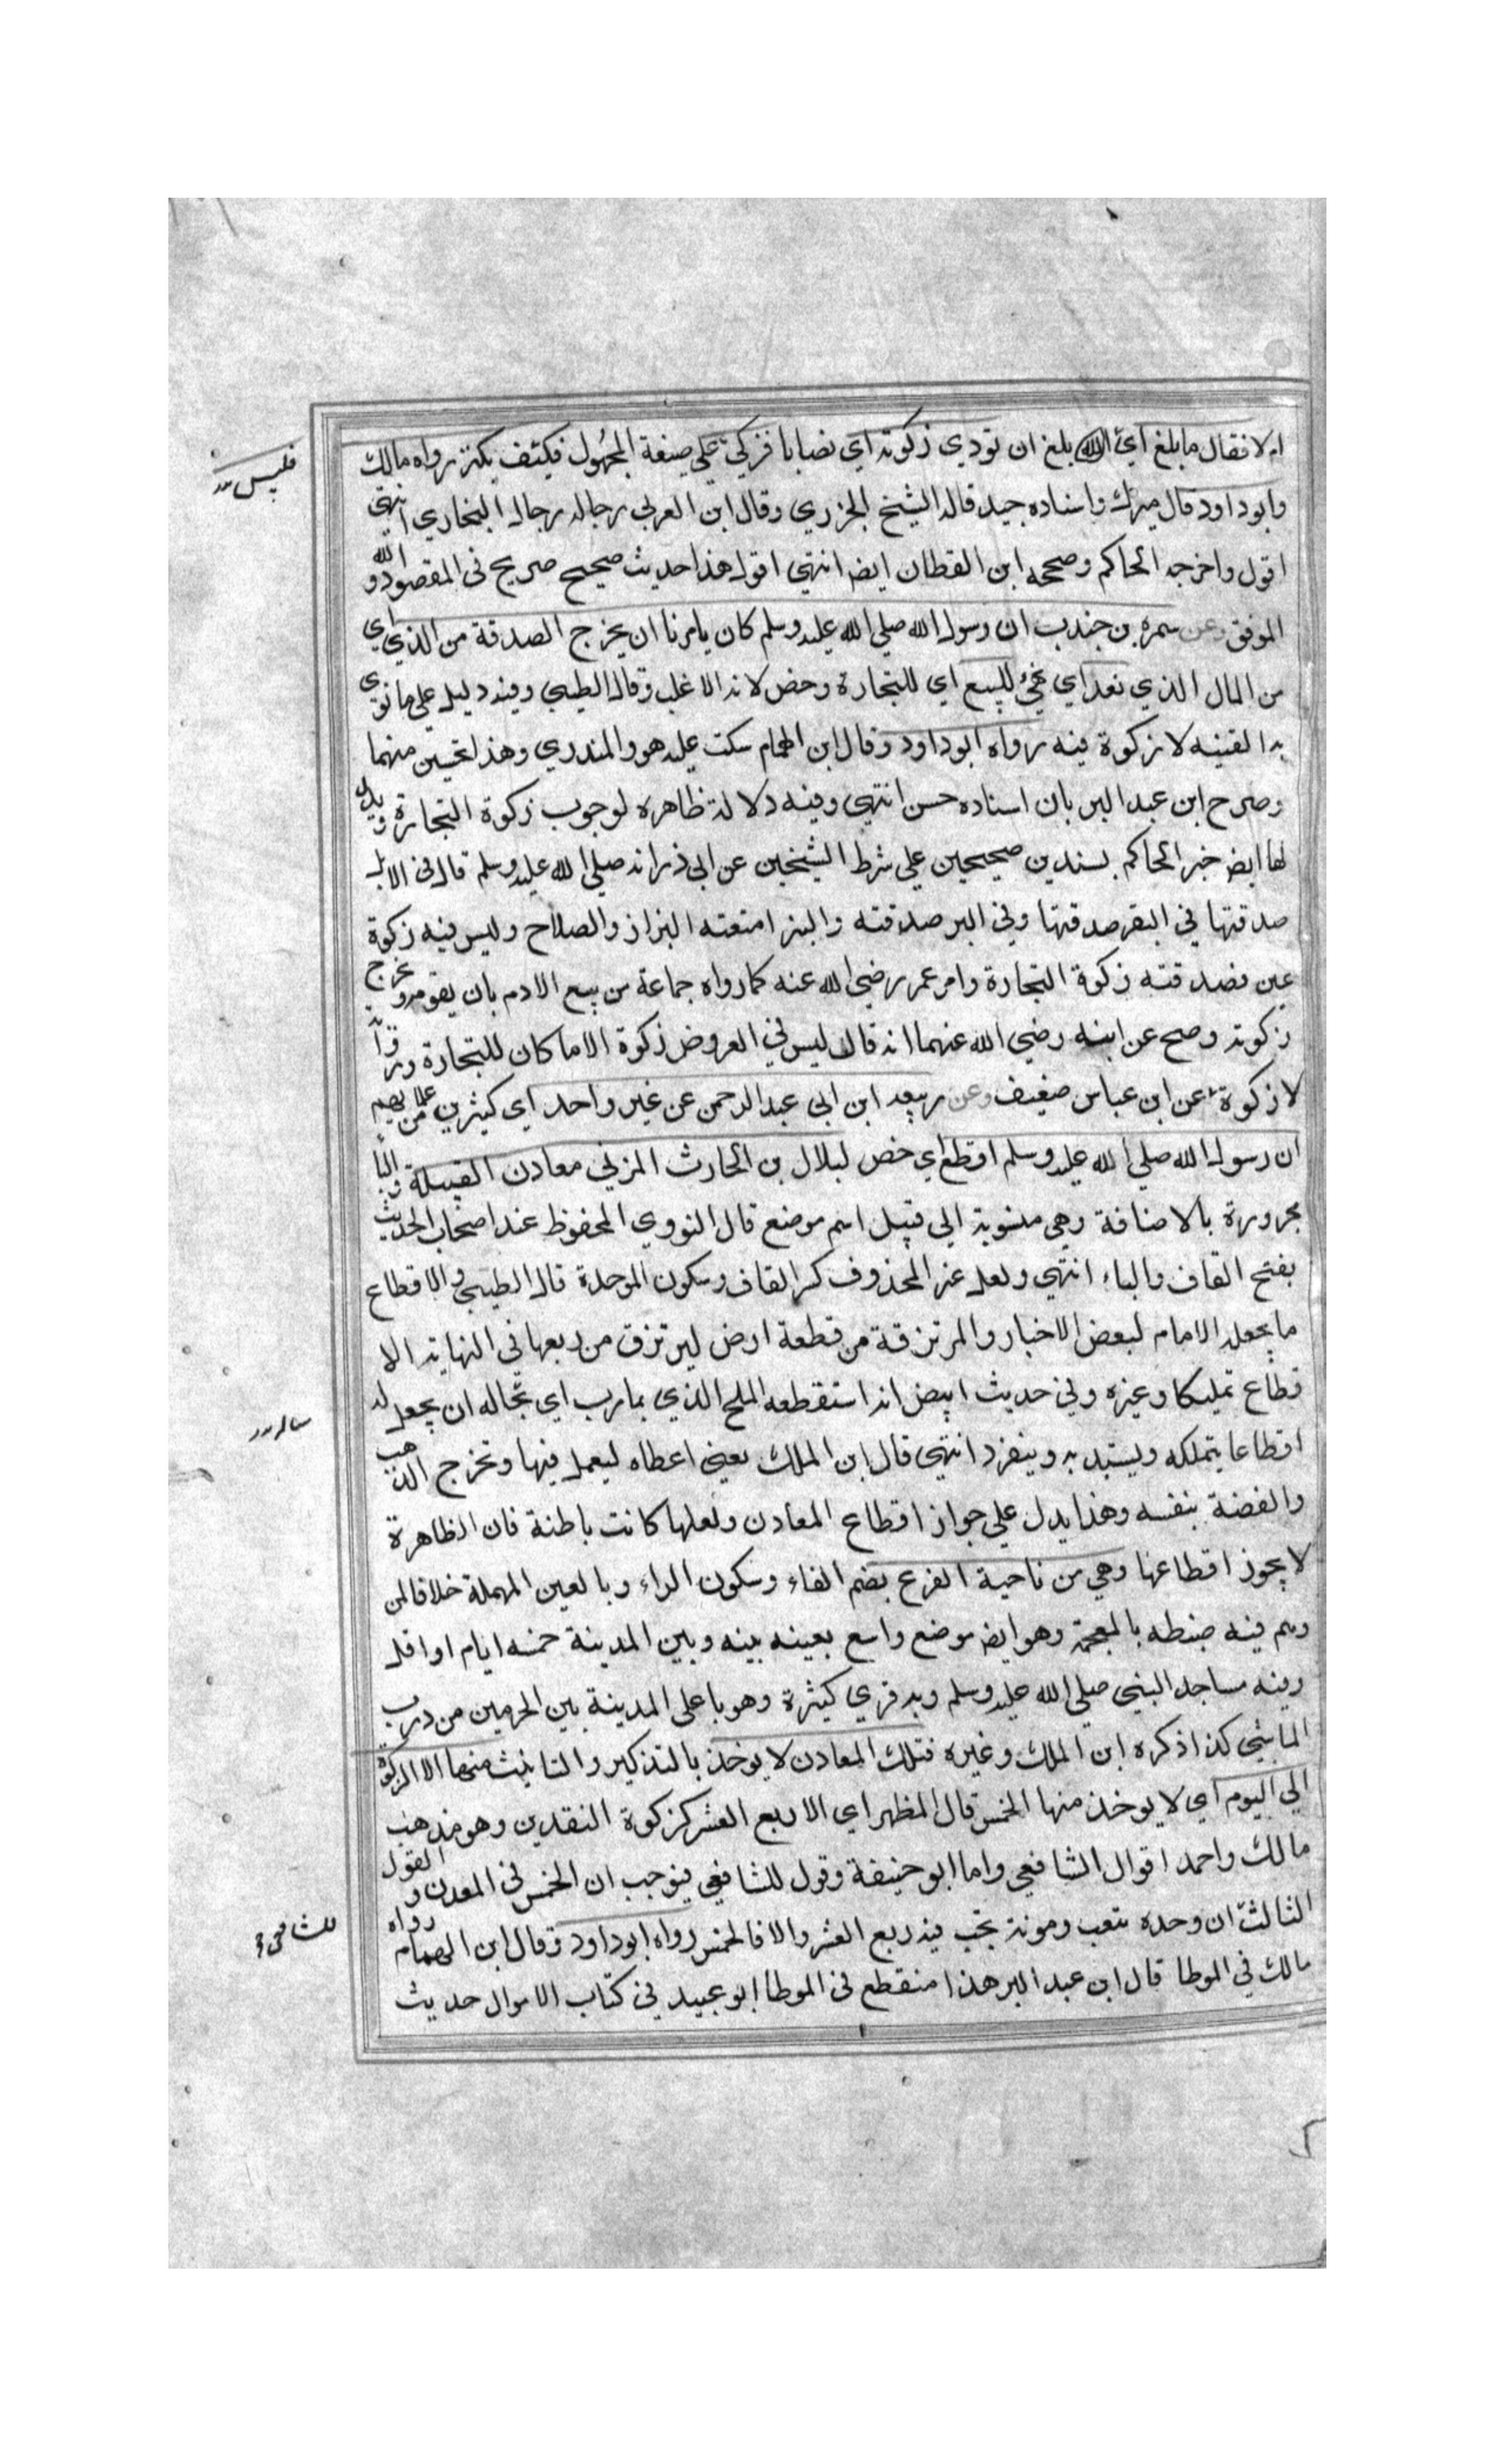 ام لا فقال ما بلغ اي الذي بلغ ان تودي زكوته اي نصابا فزكي علي صيغة المجهول فيكثف بكنز رواه مالك
فليس
وابوداود قال ميرك واسناده جيد قاله الشيخ الجزري وقال ابن العربي رجاله رجال البخاري انتهي
اقول واخرجه الحاكم وصححه ابن القطان ايض انتهي اقول هذا حديث صحيح صريح في المقصود والله
الموفق وعن سمرة بن جندب ان رسول الله صلي الله عليه وسلم كان يامرنا ان يخرج الصدقة من الذي اي
من المال الذي نعد اي نهيئ للبيع اي للتجارة وخص لانه الاغلب وقال الطيبي وفيه دليل علي ما نوي
به القنيه لا زكوة فيه رواه ابوداود وقال ابن الهمام سكت عليه هو والمنذري وهذا تحسين منهما
وصرح ابن عبد البر بان اسناده حسن انتهي وفيه دلالة ظاهره لوجوب زكوة التجارة ويدل
لها ايض خبر الحاكم بسندين صحيحين علي شرط الشيخين عن ابي ذر انه صلي الله عليه وسلم قال في الابل
صدقتها في البقر صدقتها وفي البر صدقته والبز امتعته البزاز والصلاح وليس فيه زكوة
عين فصدقته زكوة التجارة وامر عمر رضي الله عنه كما رواه جماعة من يبيع الادم بان يقومه ويخرج
زكوته وصح عن ابنه رضي الله عنهما انه قال ليس في العروض زكوة الا ما كان للتجارة وروا
لا زكوة عن ابن عباس ضعيف وعن ربيعه ابن ابي عبد الرحمن عن غير واحد اي كثيرين من علمايهم
ان رسول الله صلي الله عليه وسلم اقطع اي خص لبلال بن الحارث المزني معادن القبلية والبا
مجرورة بالاضافة وهي منسوبة الي قبل اسم موضع قال النووي المحفوظ عند اصحاب الحديث
بفتح القاف والباء انتهي ولعل غير المحذوف كسر القاف وسكون الموحدة قال الطيبي والاقطاع
ما يجعله الامام لبعض الاخبار والمرتزقة من قطعة ارض ليرتزق من ريعها في النهاية الا
قطاع تمليكا وغيره وفي حديث ابيض انه استقطعه الملح الذي بمارب اي سأله ان يجعل له
ساله
اقطاعا يتملكه ويستبد به وينفرد انتهي قال ابن الملك يعني اعطاه ليعمل فيها وتخرج الذهب
والفضة بنفسه وهذا يدل علي جواز اقطاع المعادن ولعلها كانت باطنة فان الظاهرة
لا يجوز اقطاعها وهي من ناحية الفرع بضم الفاء وسكون الراء وبالعين المهملة خلافا لمن
وهم فيه ضبطه بالمعجمة وهو ايض موضع واسع بعينه بينه وبين المدينة خمسه ايام او اقل
وفيه مساجد النبي صلي الله عليه وسلم وبه قري كثيرة وهو باعلي المدينة بين الحرمين من درب
الماشي كذا ذكره ابن الملك وغيره فتلك المعادن لا يوخذ بالتذكير والتانيث منها الا الزكوة
الي اليوم اي لا يوخذ منها الخمس قال المظهر اي الا ربع العشر كزكوة النقدين وهو مذهب
مالك واحمد اقوال الشافعي واما ابو حنيفة وقول للشافعي فيوجب ان الخمس في المعدن والقول
الثالث ان وحده بتعب ومونة يجب فيه ربع العشر والا فالخمس رواه ابوداود وقال ابن الهمام رواه
للشافعي
مالك في الموطا قال ابن عبد البر هذا منقطع في الموطا ابو عبيد في كتاب الاموال حديث